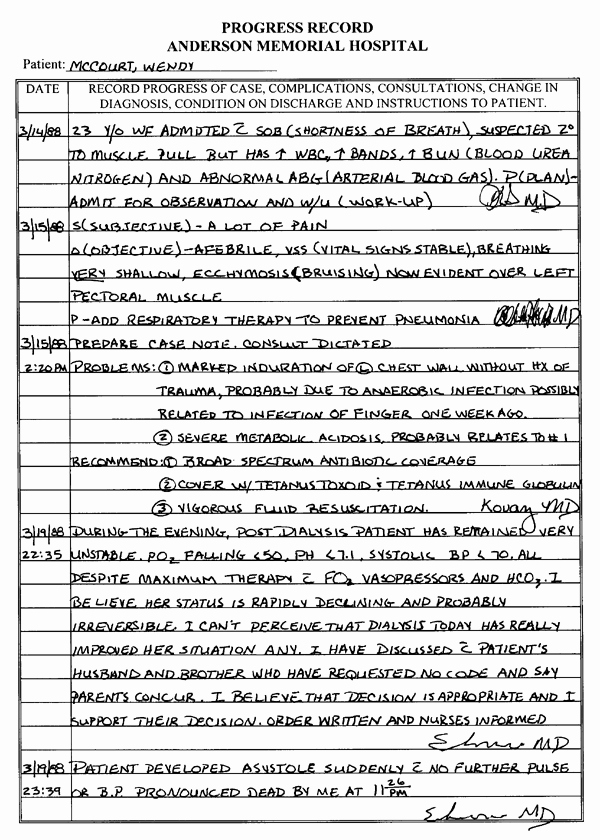 PROGRESS RECORD
ANDERSON MEMORIAL HOSPITAL
Patient: MCCOURT, WENDY
DATE RECORD PROGRESS OF CASE, COMPLICATIONS, CONSULTATIONS, CHANGE IN
DIAGNOSIS, CONDITION ON DISCHARGE AND INSTRUCTIONS TO PATIENT.
3/14/88 23 Y/O WF ADMITTED C̄ SOB (SHORTNESS OF BREATH), SUSPECTED 2°
TO MUSCLE PULL BUT HAS ↑ WBC, ↑ BANDS, ↑ BUN (BLOOD UREA
NITROGEN) AND ABNORMAL ABG (ARTERIAL BLOOD GAS). P(PLAN)-
ADMIT FOR OBSERVATION AND W/U (WORK-UP) MD
3/15/88 S(SUBJECTIVE) - A LOT OF PAIN
O(OBJECTIVE) - AFEBRILE, VSS (VITAL SIGNS STABLE), BREATHING
VERY SHALLOW, ECCHYMOSIS (BRUISING) NOW EVIDENT OVER LEFT
PECTORAL MUSCLE
P - ADD RESPIRATORY THERAPY TO PREVENT PNEUMONIA MD
3/15/88 PREPARE CASE NOTE. CONSULT DICTATED
2:20PM PROBLEMS: ① MARKED INDURATION OF Ⓛ CHEST WALL WITHOUT HX OF
TRAUMA, PROBABLY DUE TO ANAEROBIC INFECTION POSSIBLY
RELATED TO INFECTION OF FINGER ONE WEEK AGO.
② SEVERE METABOLIC ACIDOSIS, PROBABLY RELATES TO #1
RECOMMEND: ① BROAD SPECTRUM ANTIBIOTIC COVERAGE
② COVER W/TETANUS TOXOID & TETANUS IMMUNE GLOBULIN
③ VIGOROUS FLUID RESUSCITATION. MD
3/19/88 DURING THE EVENING, POST DIALYSIS PATIENT HAS REMAINED VERY
22:35 UNSTABLE, PO₂ FALLING <50, PH <7.1, SYSTOLIC BP <70, ALL
DESPITE MAXIMUM THERAPY C̄ FO₂ VASOPRESSORS AND HCO₃. I
BELIEVE HER STATUS IS RAPIDLY DECLINING AND PROBABLY
IRREVERSIBLE. I CAN'T PERCEIVE THAT DIALYSIS TODAY HAS REALLY
IMPROVED HER SITUATION ANY. I HAVE DISCUSSED C̄ PATIENT'S
HUSBAND AND BROTHER WHO HAVE REQUESTED NO CODE AND SAY
PARENTS CONCUR. I BELIEVE THAT DECISION IS APPROPRIATE AND I
SUPPORT THEIR DECISION. ORDER WRITTEN AND NURSES INFORMED
MD
3/19/88 PATIENT DEVELOPED ASYSTOLE SUDDENLY C̄ NO FURTHER PULSE
23:39 OR B.P. PRONOUNCED DEAD BY ME AT 11:26 PM
MD